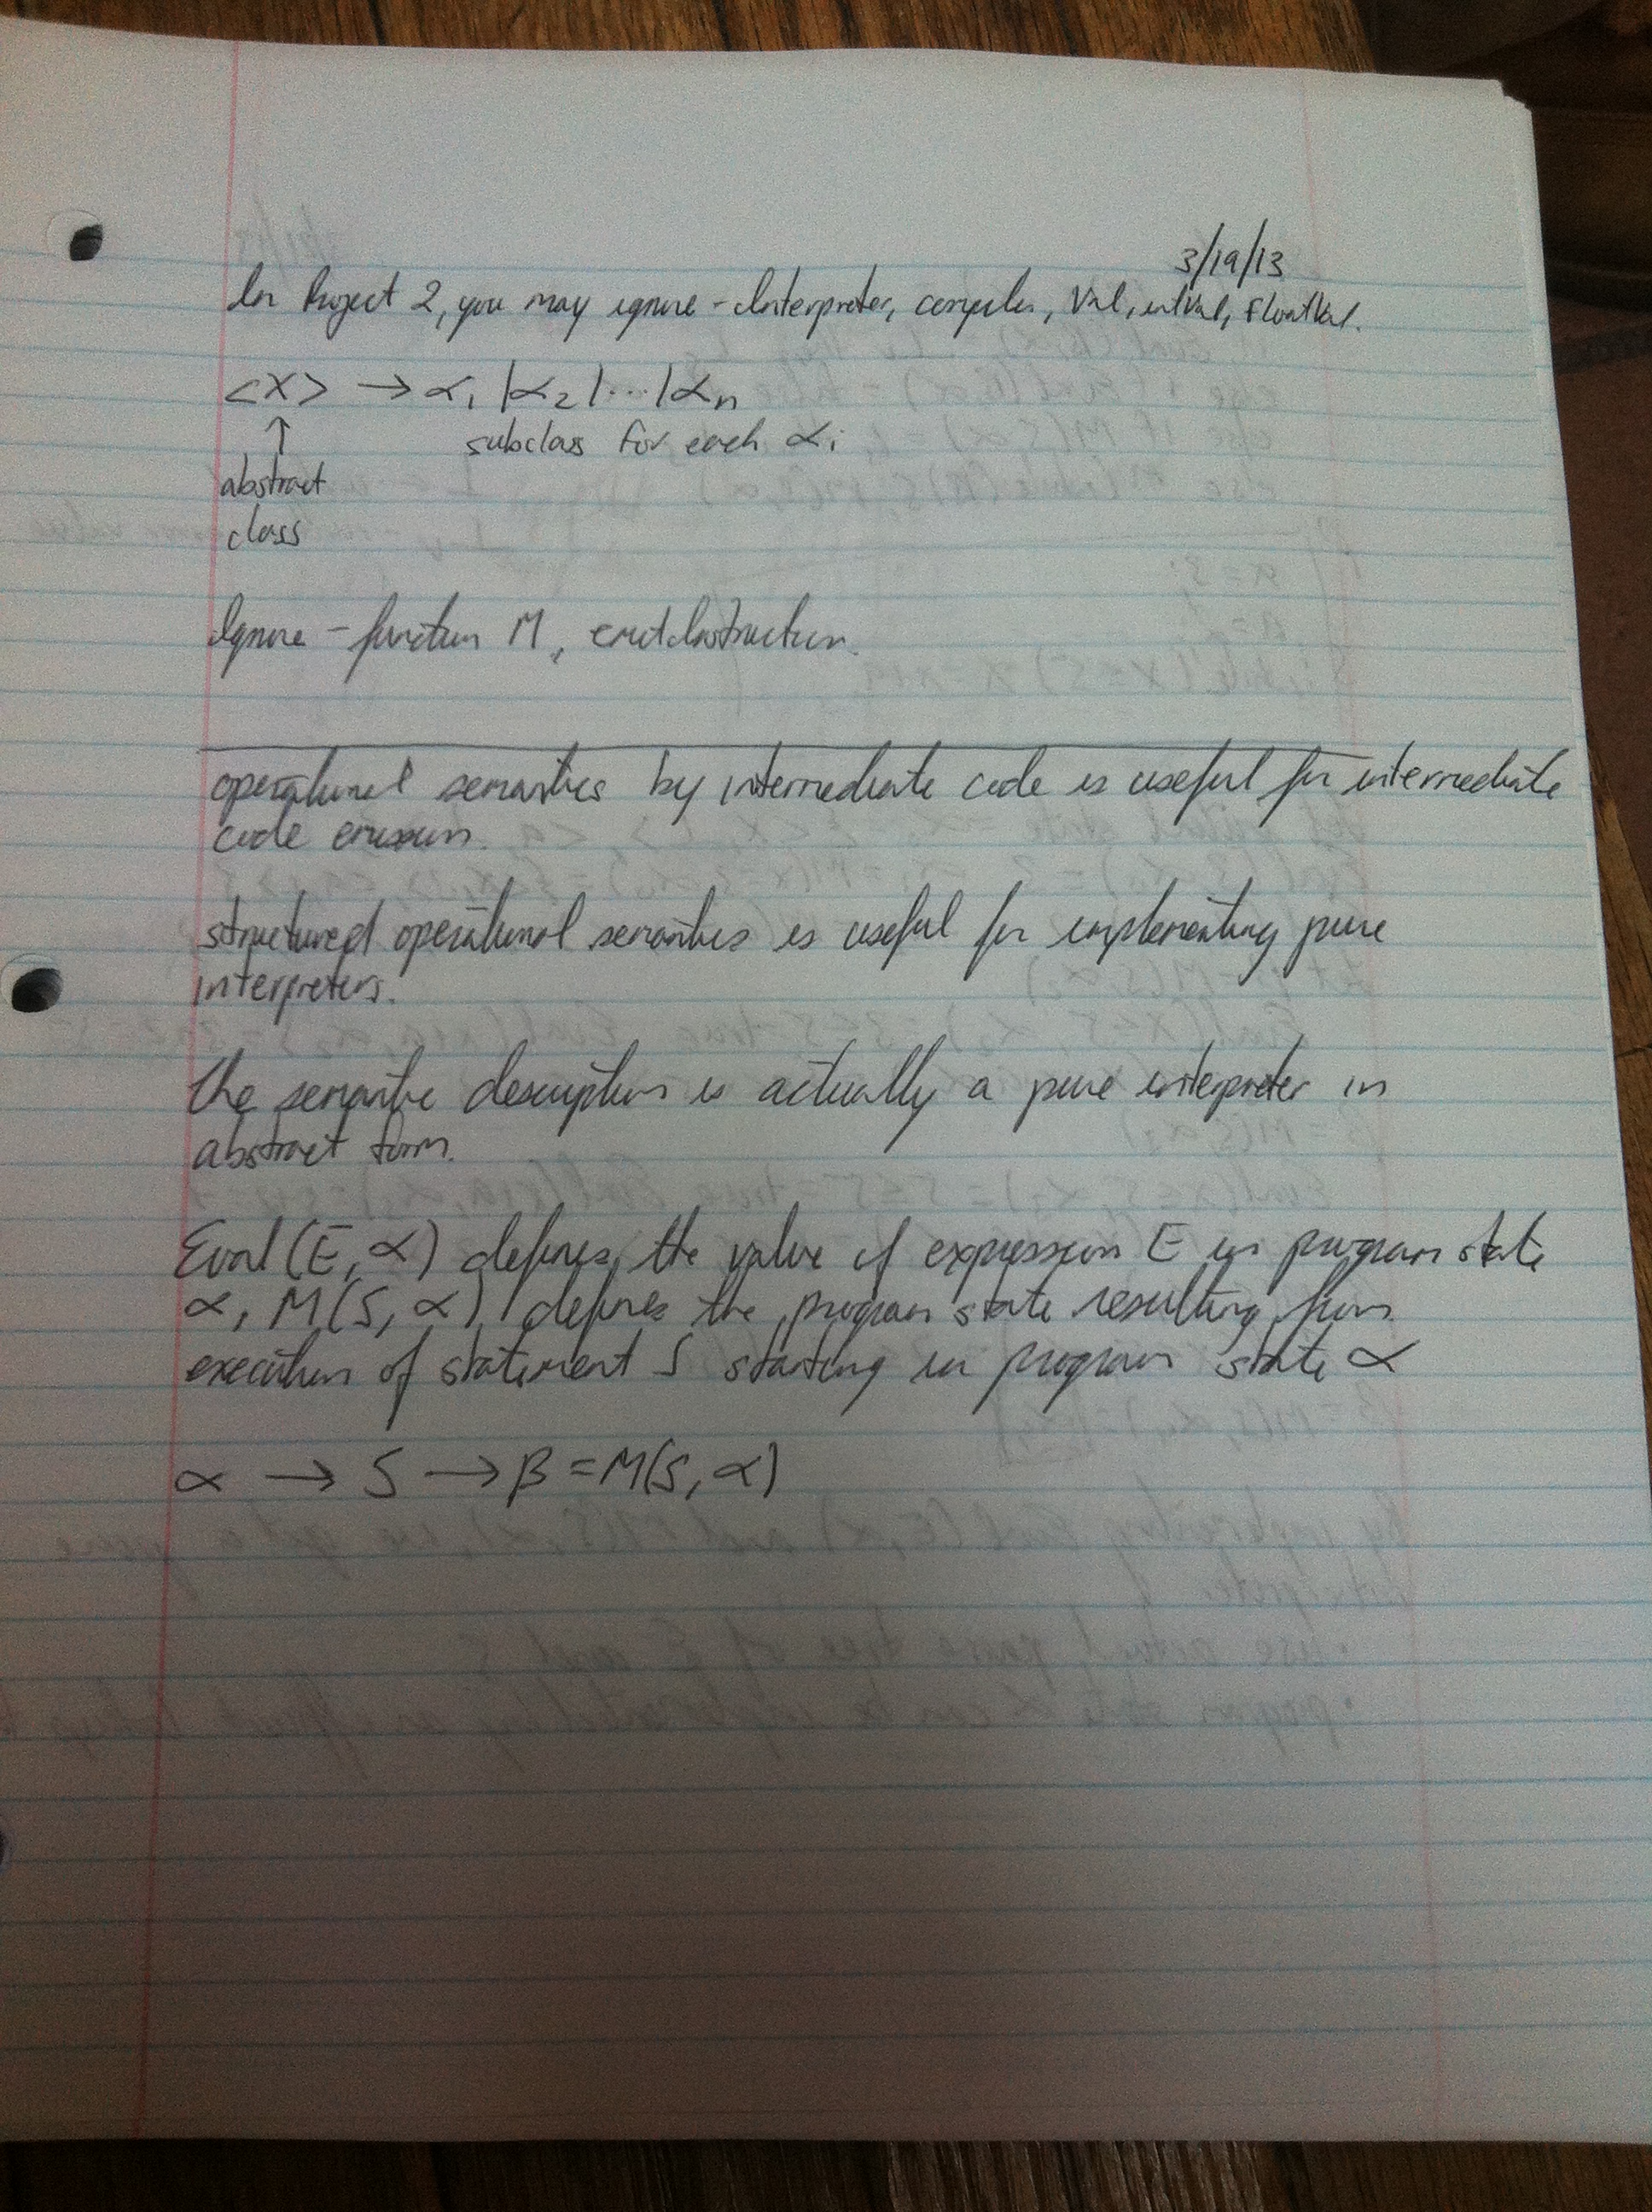 3/19/13
In Project 2, you may ignore - Interpreter, compiler, Val, intVal, FloatVal.
<X> → α₁ | α₂ | ... | αn
↑ subclass for each αi
abstract
class
Ignore - function M, emitInstruction.
operational semantics by intermediate code is useful for intermediate
code emission.
structured operational semantics is useful for implementing pure
interpreters.
The semantic description is actually a pure interpreter in
abstract form.
Eval(E, α) defines the value of expression E in program state
α, M(S, α) defines the program state resulting from
execution of statement S starting in program state α
α → S → β = M(S, α)